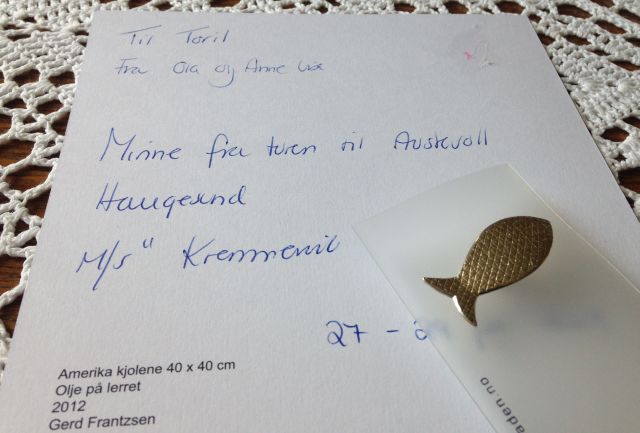 Til Toril
Fra Oia og Anne
Minne fra turen til Austevoll
Haugesund
M/s"
27 -
Amerika kjolene 40 x 40 cm
Olje på lerret
2012
Gerd Frantzsen
aden.no